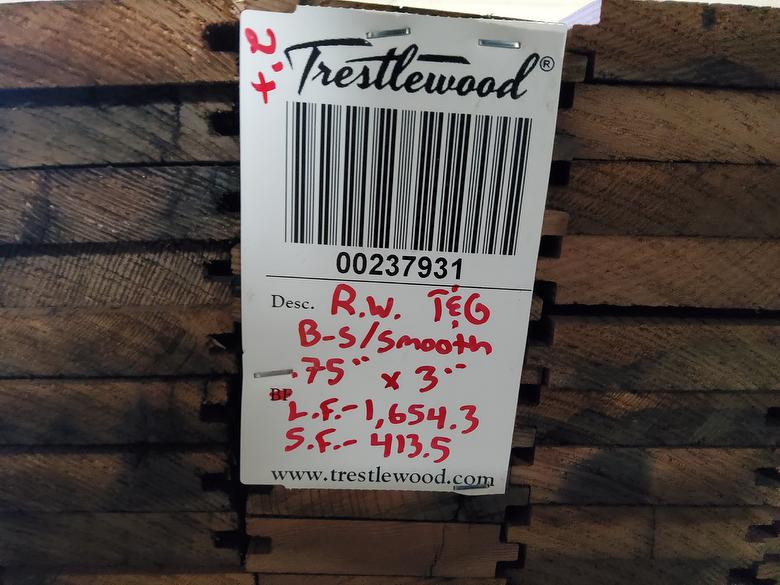 2'+
Trestlewood®
00237931
Desc. R.W. T&G
B-S/Smooth
.75" x 3"
BF
L.F.-1,654.3
S.F.- 413.5
www.trestlewood.com